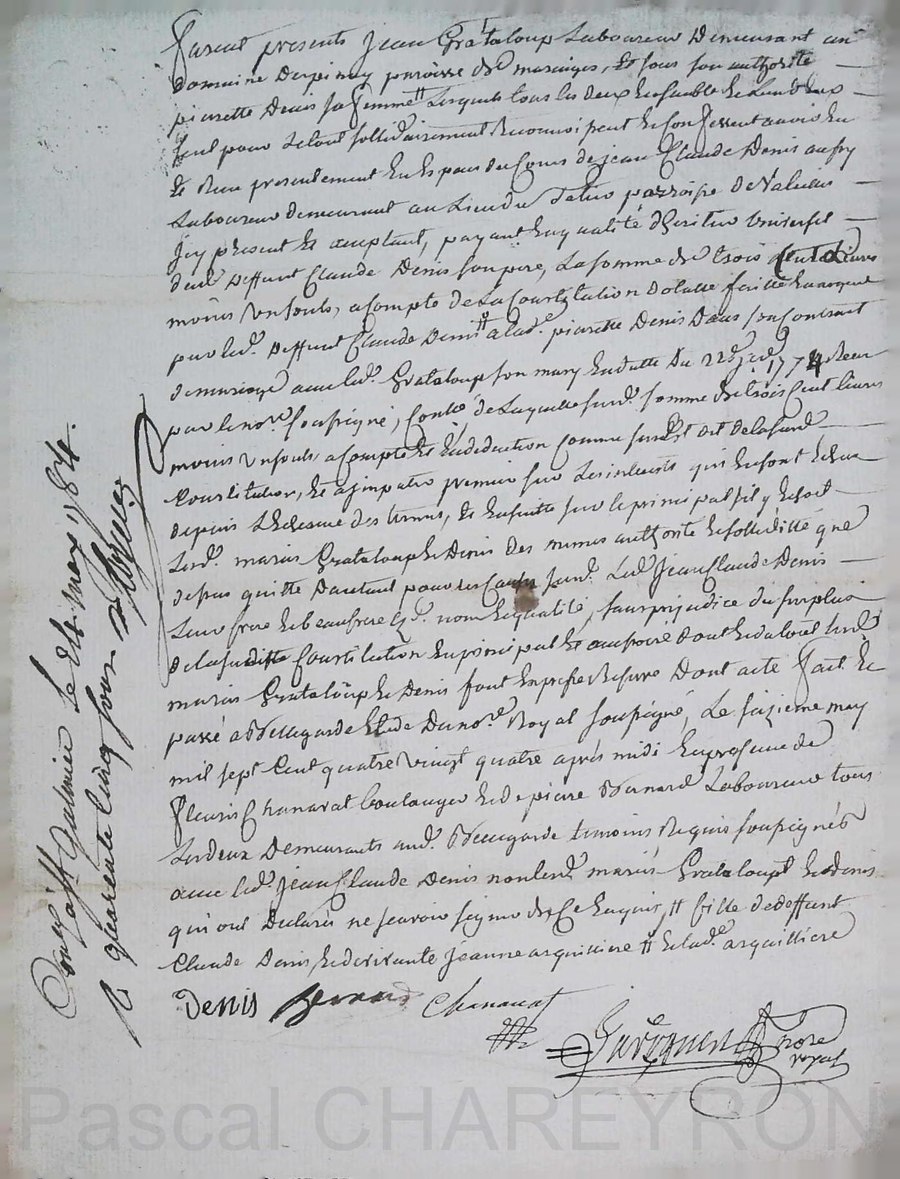 furent presents Jean Grataloup Laboureur Demeurant au
domaine Depinay paroisse de maringes, Et sous son authorité
pierette Denis sa femme # Lesquels tous les deux Ensemble Et Lun deux
seul pour Letout sollidairement Reconnoissent Et Confessent avoir Eu
Et Reçu presentement En Espece du Cours de jean Claude Denis aussy
Laboureur demeurant au Lieu du parroisse de Valeille
Icy present Et acceptant, payant En qualité dheritier Universel
deud. Deffunt Claude Denis son pere, La somme de trois Cent Livres
moins un sould, acompte de La Constitution dotalle faitte
par led. Deffunt Claude Denis # alad.e pierette Denis Dans son Contract
de mariage avec led. Grataloup son mary En datte du 22e 1774 Reçu
par le no.re soussigné, de Laquelle surd. somme de trois Cent livres
moins un sould, acompte Et En deduction Comme sus Est dit de La surd.
Constitution, Et a jmputer premier sur Les interets qui En sont Echus
depuis Lecheance des termes, Et En suitte sur le principal sil y Echoit
Lesd. mariés Grataloup Et Denis des memes authorité Et sollidité que
dessus quitte Dautant pour les Causes surd. Led. Jean Claude Denis
Leur frere Et beaufrere Esd. nom Et qualité, sans prejudice du surplus
de La suditte Constitution En principal Et accessoire dont Et du tout Lesd.
mariés Grataloup Et Denis font Expresse Reserve Dont acte fait Et
passé a Bellegarde Etude Du no.re Royal soussigné, Le seizieme may
mil sept Cent quatre vingt quatre après midi En presence de
fleuris Chanavat boulanger Et de pierre Bernard Laboureur tous
Les deux Demeurants aud. Bellegarde temoins Requis soussignés
avec led. Jean Claude Denis non lesd. mariés Grataloup Et Denis
qui ont Declaré ne scavoir signer de Ce Enquis, # fille de deffunt
Claude Denis Et de vivante Jeanne arquilliere # Et lad.e arquilliere
Denis Bernard Chanavat
no.re
royal
Con.lé a St Galmier le 26 may 1784.
R quarente Cinq sous
Pascal CHAREYRON